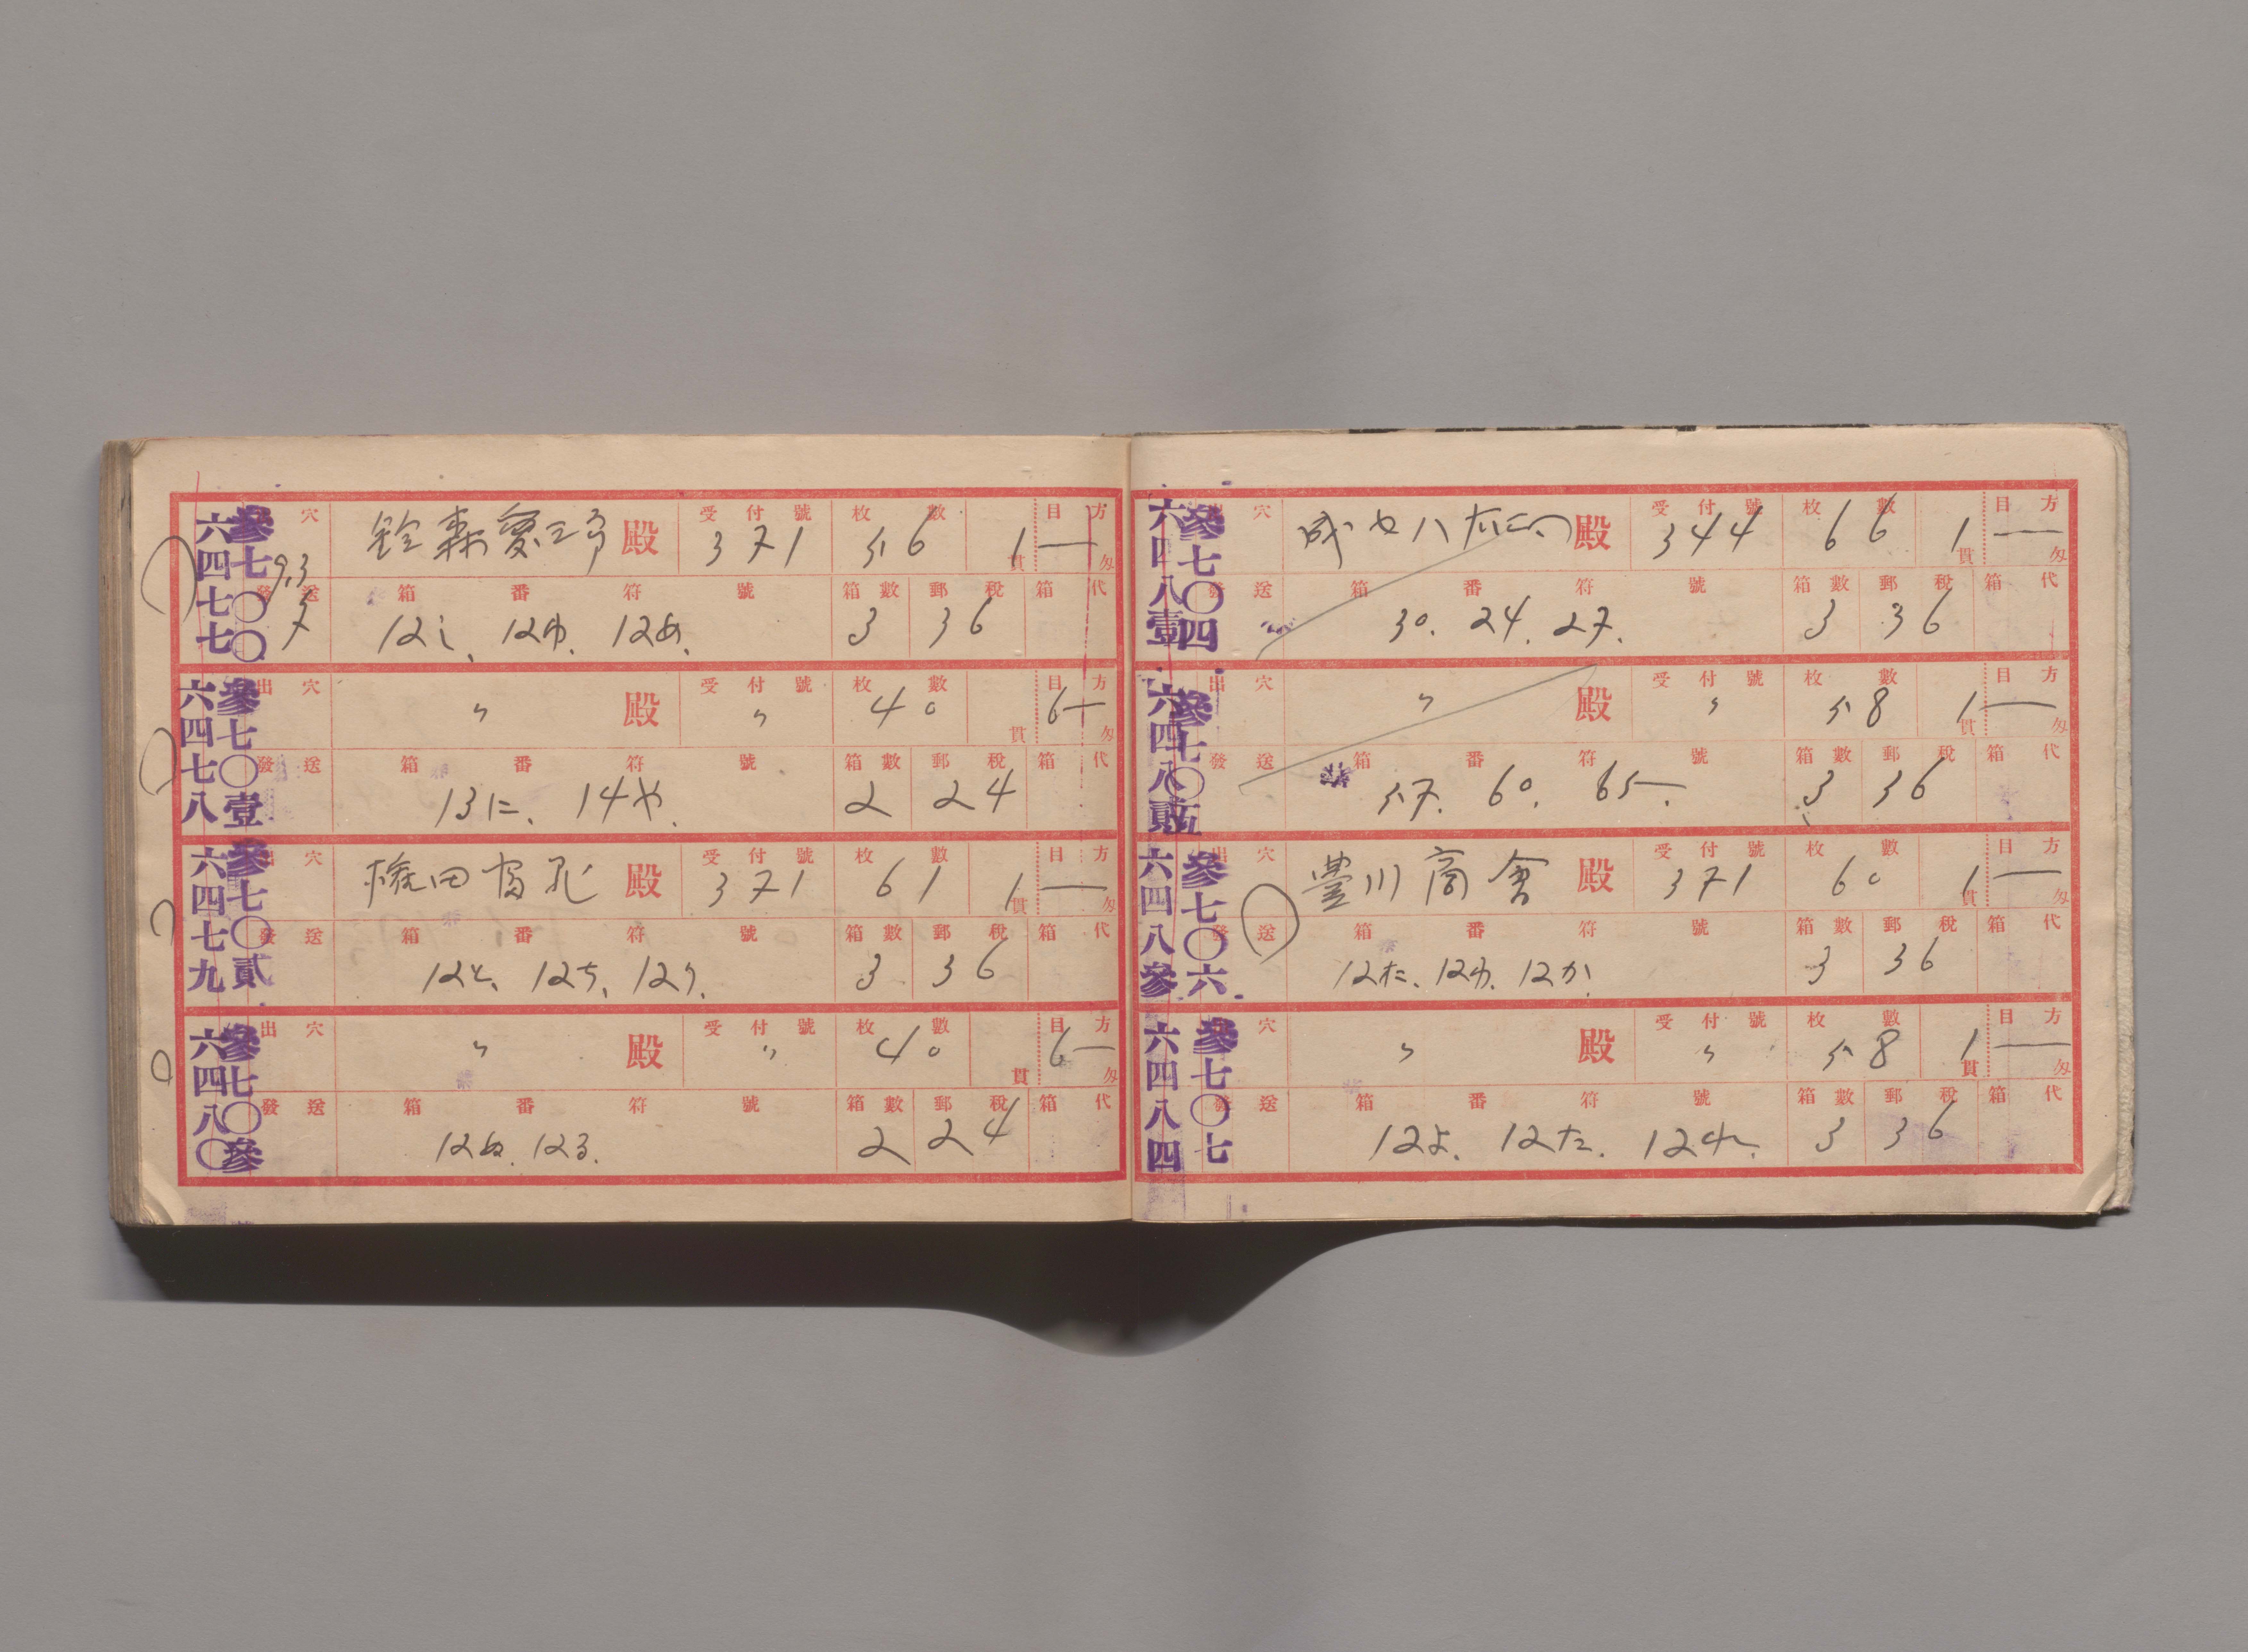 六四七七 參七〇〇
出 穴 殿 受付號 371 枚數 56 1貫 目方 一 匁
9.3 7
發送 箱番符號 12し、12ゆ、12め、 箱數 3 郵稅 36 箱代
六四七八 參七〇壹
出 穴 〃 殿 受付號 〃 枚數 40 貫 目方 6一 匁
發送 箱番符號 13に、14や、 箱數 2 郵稅 24 箱代
六四七九 參七〇貳
出 穴 田 殿 受付號 371 枚數 61 1貫 目方 一 匁
發送 箱番符號 12と、12ち、12り、 箱數 3 郵稅 36 箱代
六四八〇 參七〇參
出 穴 〃 殿 受付號 〃 枚數 40 貫 目方 6一 匁
發送 箱番符號 12ぬ、12る、 箱數 2 郵稅 24 箱代
六四八壹 參七〇四
出 穴 殿 受付號 344 枚數 66 1貫 目方 一 匁
發送 箱番符號 30. 24. 27. 箱數 3 郵稅 36 箱代
六四八貳 參七〇五
出 穴 〃 殿 受付號 〃 枚數 58 1貫 目方 一 匁
發送 箱番符號 57. 60. 65. 箱數 3 郵稅 36 箱代
六四八參 參七〇六
出 穴 豐川商會 殿 受付號 371 枚數 60 1貫 目方 一 匁
發送 箱番符號 12わ、12か、 箱數 3 郵稅 36 箱代
六四八四 參七〇七
出 穴 〃 殿 受付號 〃 枚數 58 1貫 目方 一 匁
發送 箱番符號 12よ、12た、12れ、 箱數 3 郵稅 36 箱代